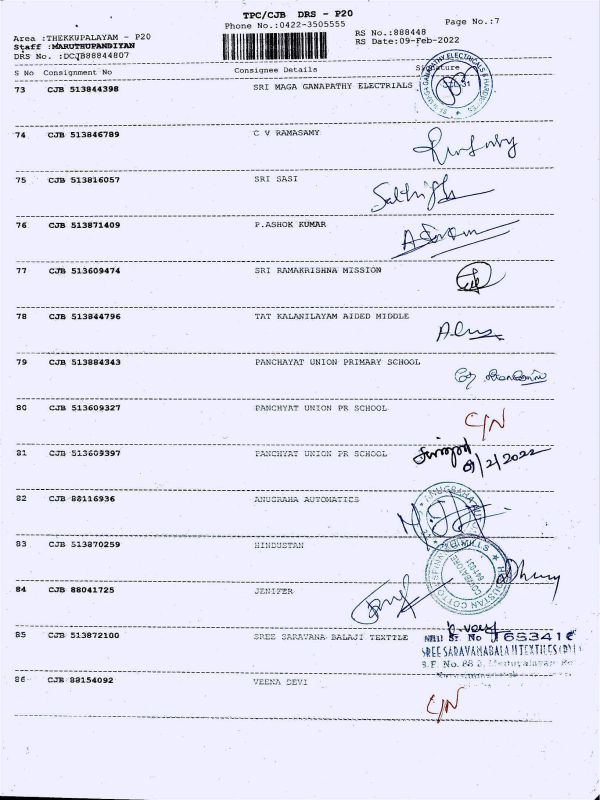 TPC/CJB DRS - P20
Phone No.:0422-3505555
Page No.:7
Area :THEKKUPALAYAM - P20
RS No.:888448
Staff :MARUTHUPANDIYAN
RS Date:09-Feb-2022
DRS No. :DCJB88844807
S No Consignment No Consignee Details Signature
73 CJB 513844398 SRI MAGA GANAPATHY ELECTRIALS
74 CJB 513846789 C V RAMASAMY
75 CJB 513816057 SRI SASI
76 CJB 513871409 P.ASHOK KUMAR
77 CJB 513609474 SRI RAMAKRISHNA MISSION
78 CJB 513844796 TAT KALANILAYAM AIDED MIDDLE
79 CJB 513884343 PANCHAYAT UNION PRIMARY SCHOOL
80 CJB 513609327 PANCHYAT UNION PR SCHOOL C/N
81 CJB 513609397 PANCHYAT UNION PR SCHOOL
9/2/2022
82 CJB 88116936 ANUGRAHA AUTOMATICS
83 CJB 513870259 HINDUSTAN
84 CJB 88041725 JENIFER
85 CJB 513872100 SREE SARAVANA BALAJI TEXTILE
86 CJB 88154092 VEENA DEVI
C/N